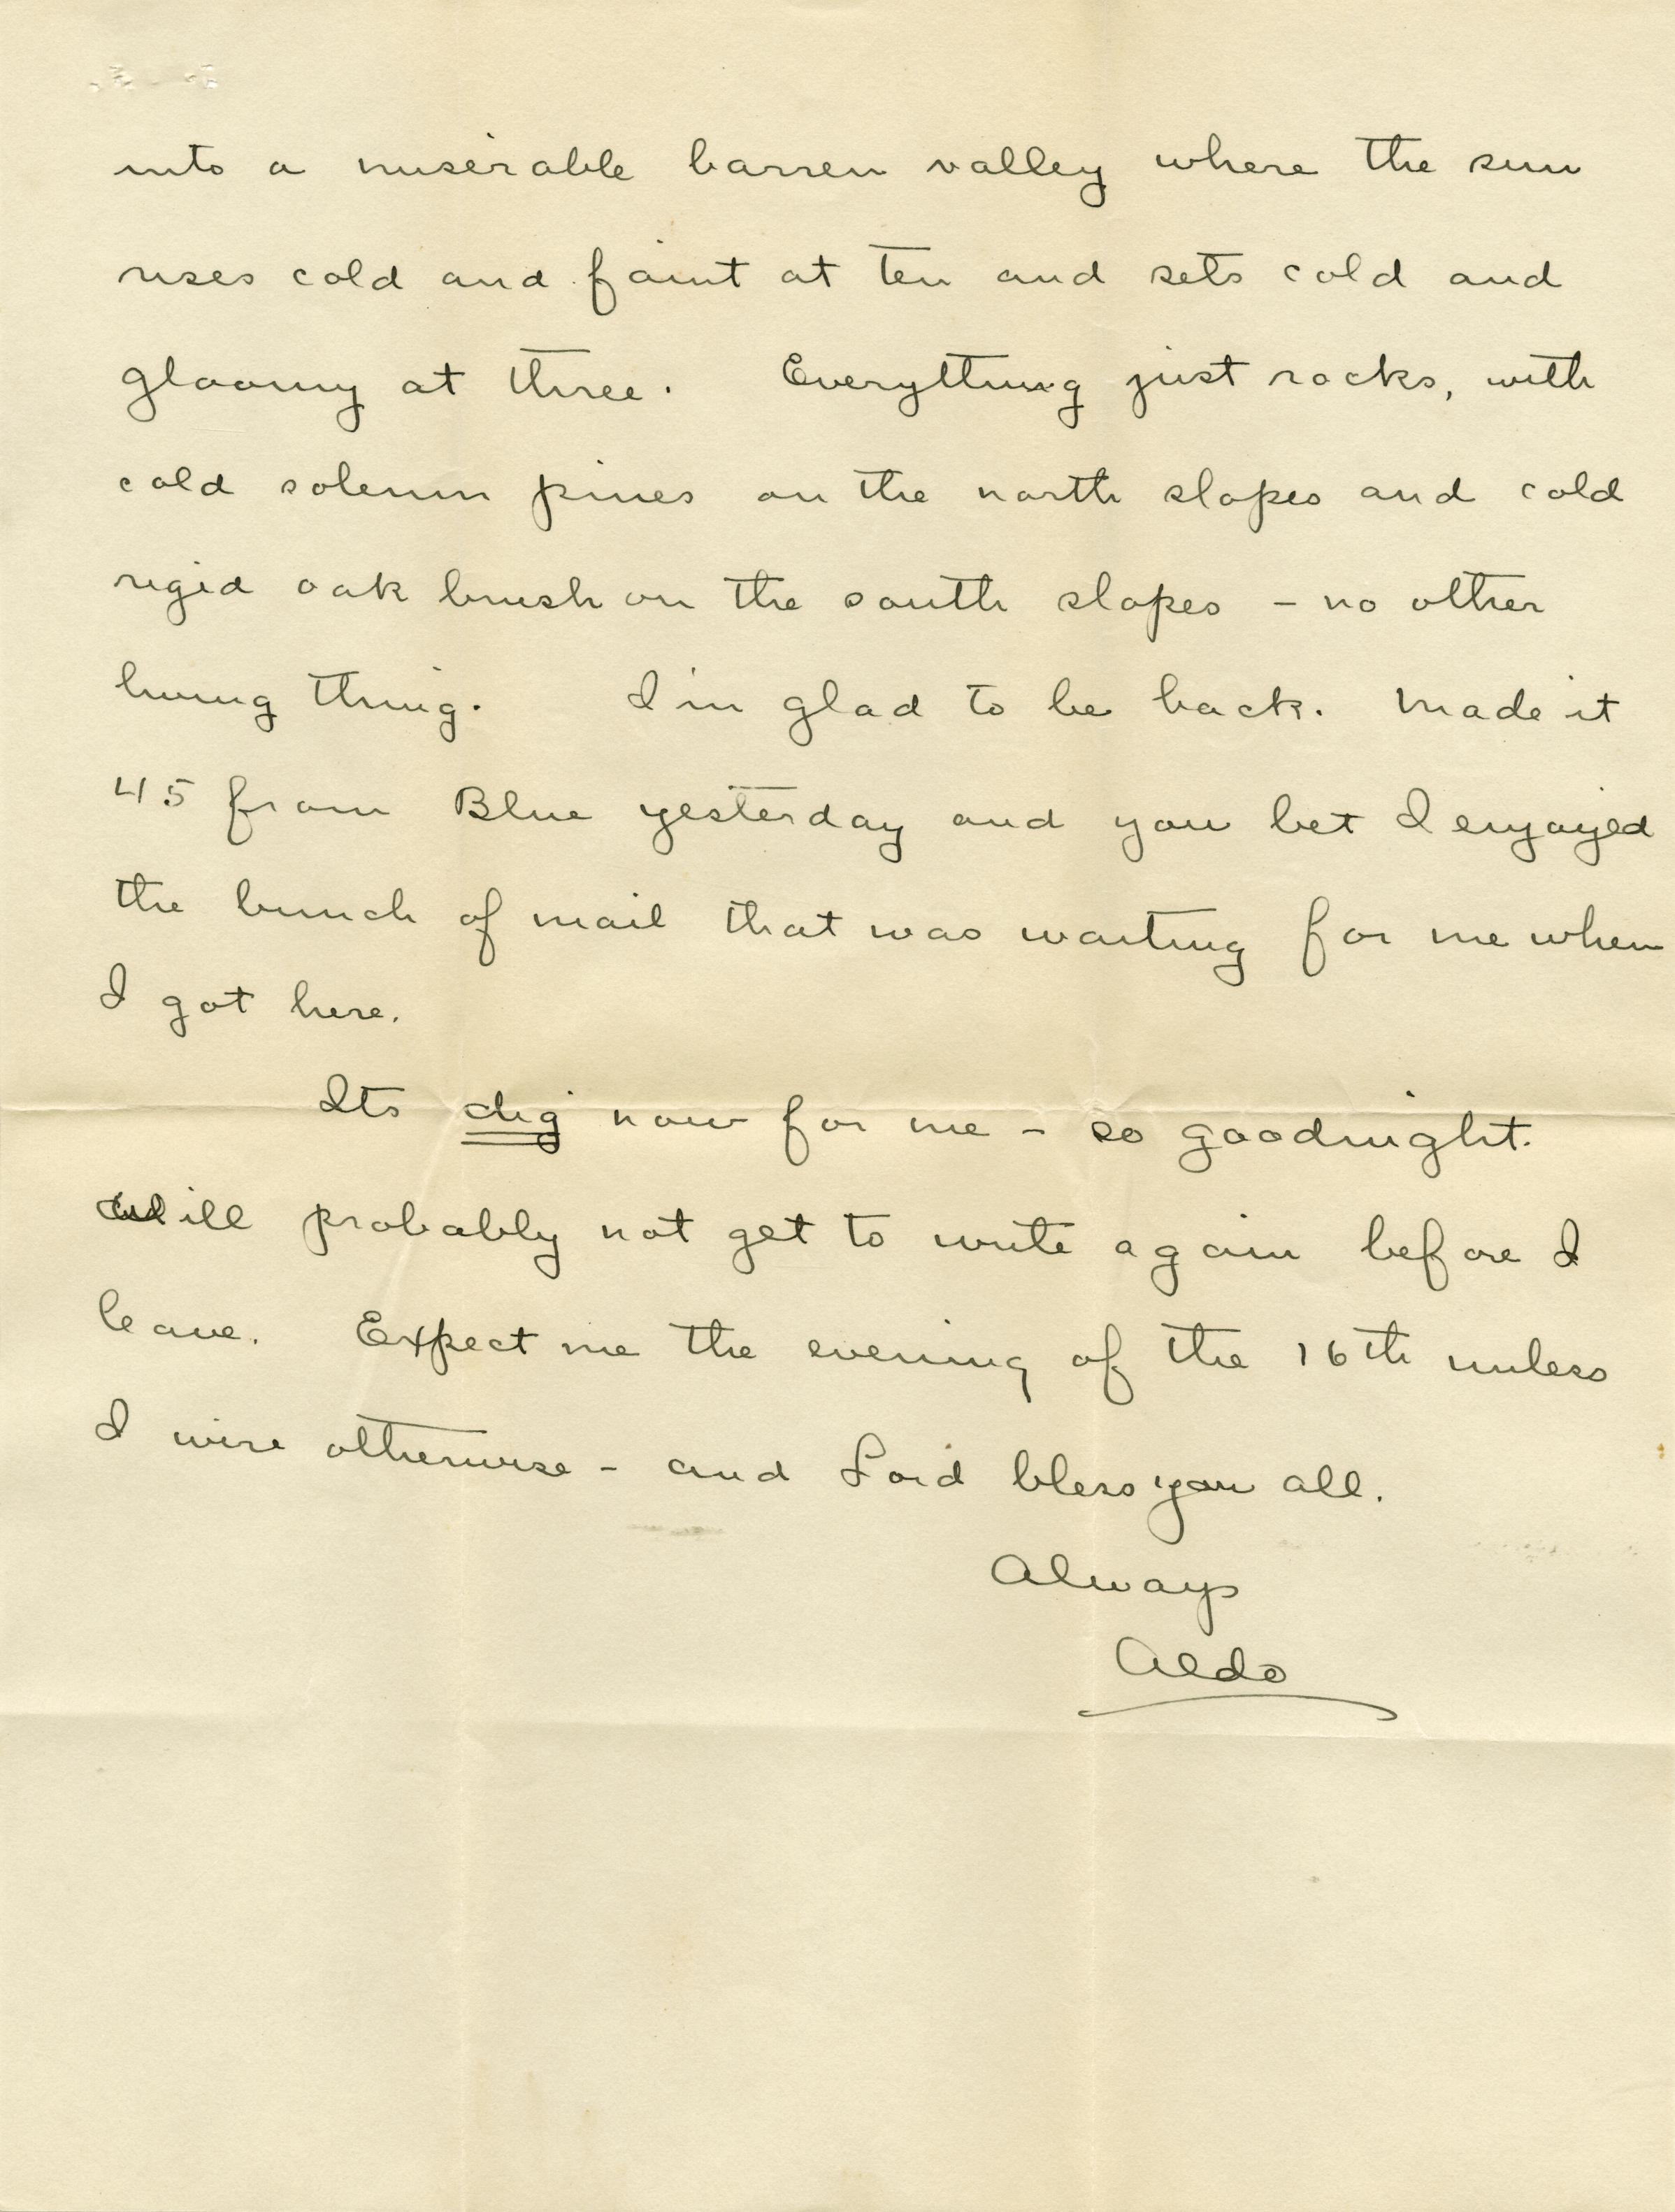 into a miserable barren valley where the sun
rises cold and faint at ten and sets cold and
gloomy at three. Everything just rocks, with
cold solemn pines on the north slopes and cold
rigid oak brush on the south slopes - no other
living thing. I'm glad to be back. Made it
45 from Blue yesterday and you bet I enjoyed
the bunch of mail that was waiting for me when
I got here.
Its dig now for me - so goodnight.
Will probably not get to write again before I
leave. Expect me the evening of the 16th unless
I wire otherwise - and Lord bless you all.
Always
Aldo